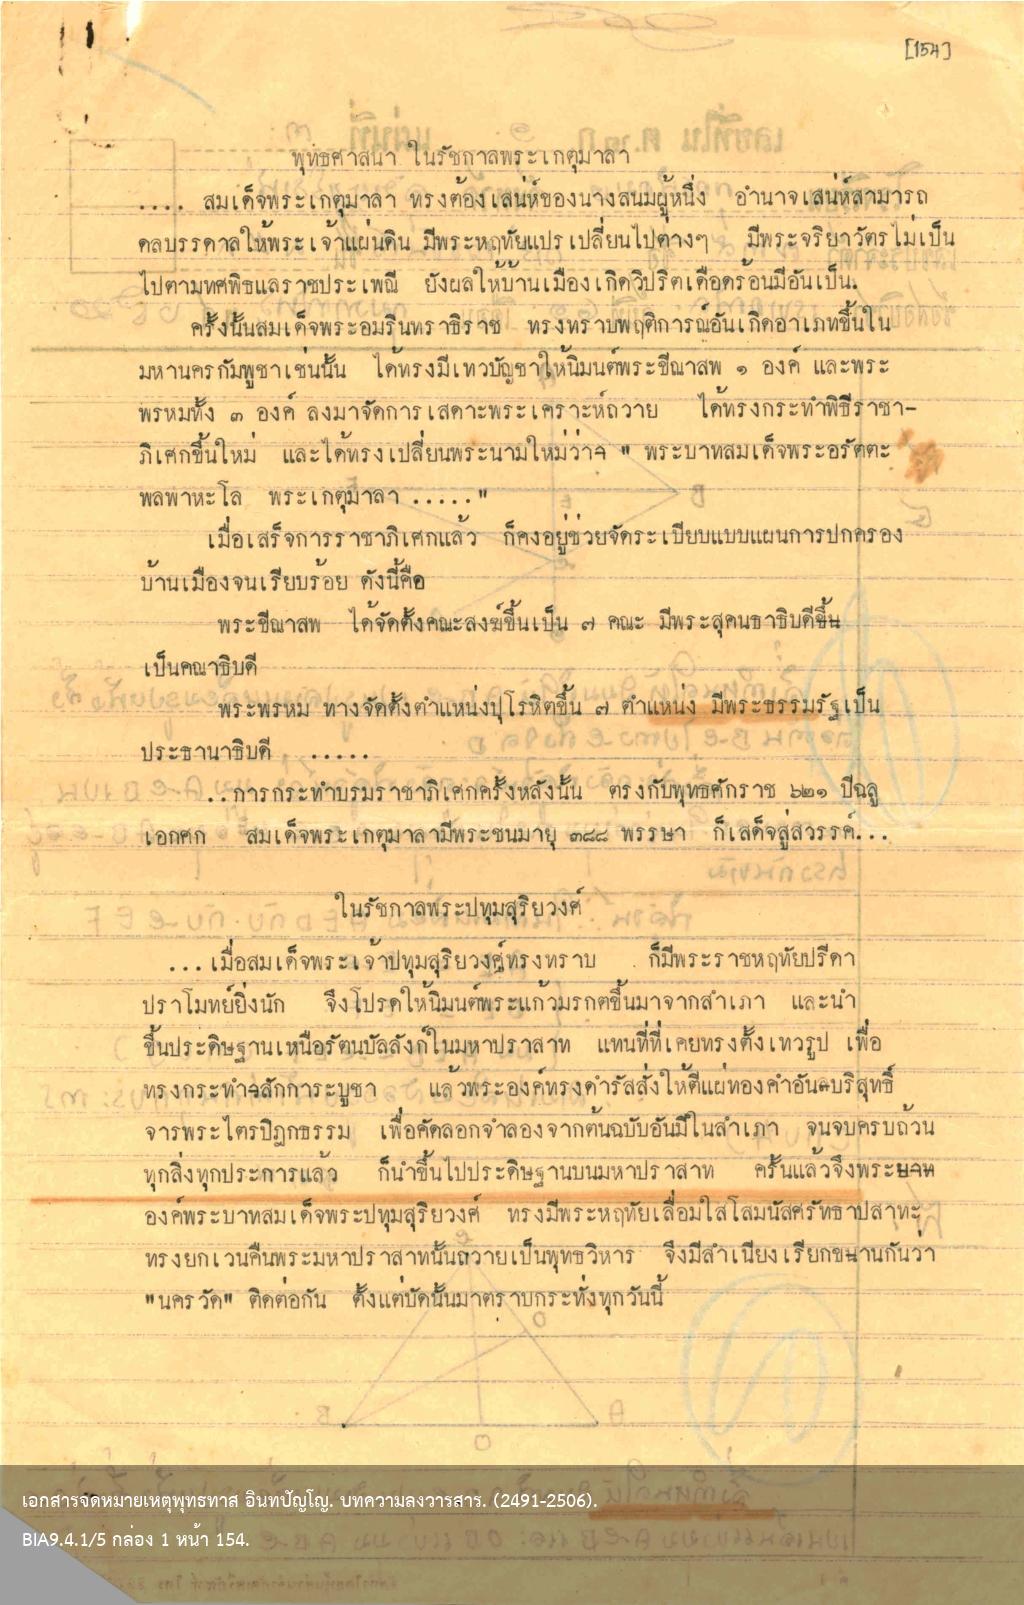 [154]
พุทธศาสนา ในรัชกาลพระเกตุมาลา
.... สมเด็จพระเกตุมาลา ทรงต้องเสน่ห์ของนางสนมผู้หนึ่ง อำนาจเสน่ห์สามารถ
ดลบรรดาลให้พระเจ้าแผ่นดิน มีพระหฤทัยแปรเปลี่ยนไปต่างๆ มีพระจริยาวัตรไม่เป็น
ไปตามทศพิธแลราชประเพณี ยังผลให้บ้านเมืองเกิดวิปริตเดือดร้อนมีอันเป็น.
ครั้งนั้นสมเด็จพระอมรินทราธิราช ทรงทราบพฤติการณ์อันเกิดอาเภทขึ้นใน
มหานครกัมพูชาเช่นนั้น ได้ทรงมีเทวบัญชาให้นิมนต์พระขีณาสพ ๑ องค์ และพระ
พรหมทั้ง ๓ องค์ ลงมาจัดการเสดาะพระเคราะห์ถวาย ได้ทรงกระทำพิธีราชา-
ภิเศกขึ้นใหม่ และได้ทรงเปลี่ยนพระนามใหม่ว่า " พระบาทสมเด็จพระอรัตตะ
พลพาหะโล พระเกตุมาลา ....."
เมื่อเสร็จการราชาภิเศกแล้ว ก็คงอยู่ช่วยจัดระเบียบแบบแผนการปกครอง
บ้านเมืองจนเรียบร้อย ดังนี้คือ
พระขีณาสพ ได้จัดตั้งคณะสงฆ์ขึ้นเป็น ๗ คณะ มีพระสุคนธาธิบดีขึ้น
เป็นคณาธิบดี
พระพรหม ทางจัดตั้งตำแหน่งปุโรหิตขึ้น ๗ ตำแหน่ง มีพระธรรมรัฐเป็น
ประธานาธิบดี ......
..การกระทำบรมราชาภิเศกครั้งหลังนั้น ตรงกับพุทธศักราช ๖๒๑ ปีฉลู
เอกศก สมเด็จพระเกตุมาลามีพระชนมายุ ๓๘๘ พรรษา ก็เสด็จสู่สวรรค์...
ในรัชกาลพระปทุมสุริยวงศ์
...เมื่อสมเด็จพระเจ้าปทุมสุริยวงศ์ทรงทราบ ก็มีพระราชหฤทัยปรีดา
ปราโมทย์ยิ่งนัก จึงโปรดให้นิมนต์พระแก้วมรกตขึ้นมาจากสำเภา และนำ
ขึ้นประดิษฐานเหนือรัตนบัลลังก์ในมหาปราสาท แทนที่ที่เคยทรงตั้งเทวรูป เพื่อ
ทรงกระทำสักการะบูชา แล้วพระองค์ทรงดำรัสสั่งให้ตีแผ่ทองคำอันบริสุทธิ์
จารพระไตรปิฎกธรรม เพื่อคัดลอกจำลองจากต้นฉบับอันมีในสำเภา จนจบครบถ้วน
ทุกสิ่งทุกประการแล้ว ก็นำขึ้นไปประดิษฐานบนมหาปราสาท ครั้นแล้วจึงพระบาท
องค์พระบาทสมเด็จพระปทุมสุริยวงศ์ ทรงมีพระหฤทัยเลื่อมใสโสมนัสศรัทธาปสาทะ
ทรงยกเวนคืนพระมหาปราสาทนั้นถวายเป็นพุทธวิหาร จึงมีสำเนียงเรียกขนานกันว่า
"นครวัด" ติดต่อกัน ตั้งแต่บัดนั้นมาตราบกระทั่งทุกวันนี้
เอกสารจดหมายเหตุพุทธทาส อินทปัญโญ. บทความลงวารสาร. (2491-2506).
BIA9.4.1/5 กล่อง 1 หน้า 154.